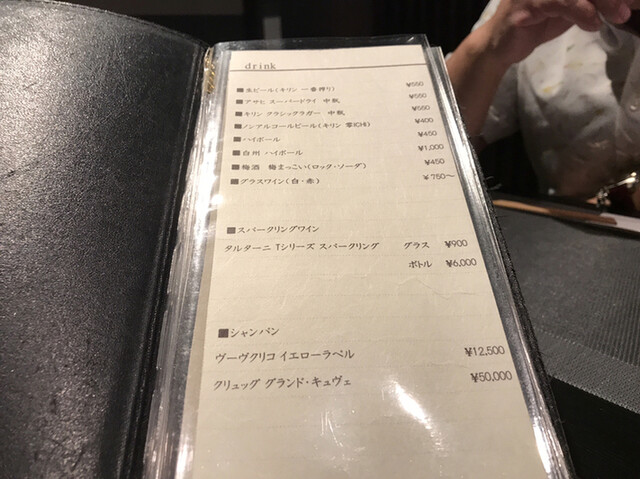 drink
■生ビール(キリン 一番搾り) ¥550
■アサヒ スーパードライ 中瓶 ¥550
■キリン クラシックラガー 中瓶 ¥550
■ノンアルコールビール(キリン 零ICHI) ¥400
■ハイボール ¥450
■白州 ハイボール ¥1,000
■梅酒 梅まっこい(ロック・ソーダ) ¥450
■グラスワイン(白・赤) ¥750〜
■スパークリングワイン
タルターニ Tシリーズ スパークリング グラス ¥900
ボトル ¥6,000
■シャンパン
ヴーヴクリコ イエローラベル ¥12,500
クリュッグ グランド・キュヴェ ¥50,000